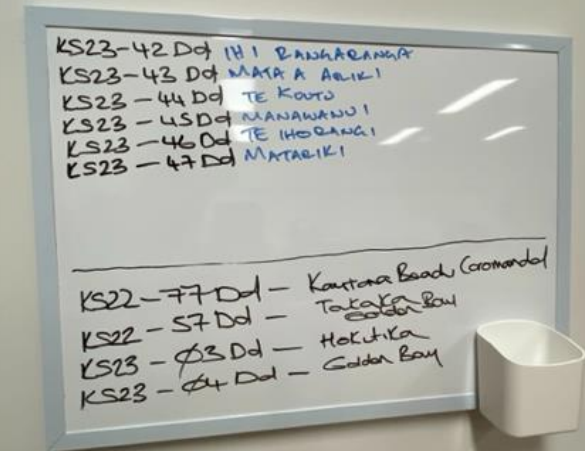 KS23-42 Dd IHI RANGARANGA
KS23-43 Dd MATA A ARIKI
KS23-44 Dd TE KOUTU
KS23-45 Dd MANAWANUI
KS23-46 Dd TE IHORANGI
KS23-47 Dd MATARIKI
KS22-77 Dd - Beach, Coromandel
KS22-57 Dd - Takaka Golden Bay
KS23-Ø3 Dd - Hokitika
KS23-Ø4 Dd - Golden Bay